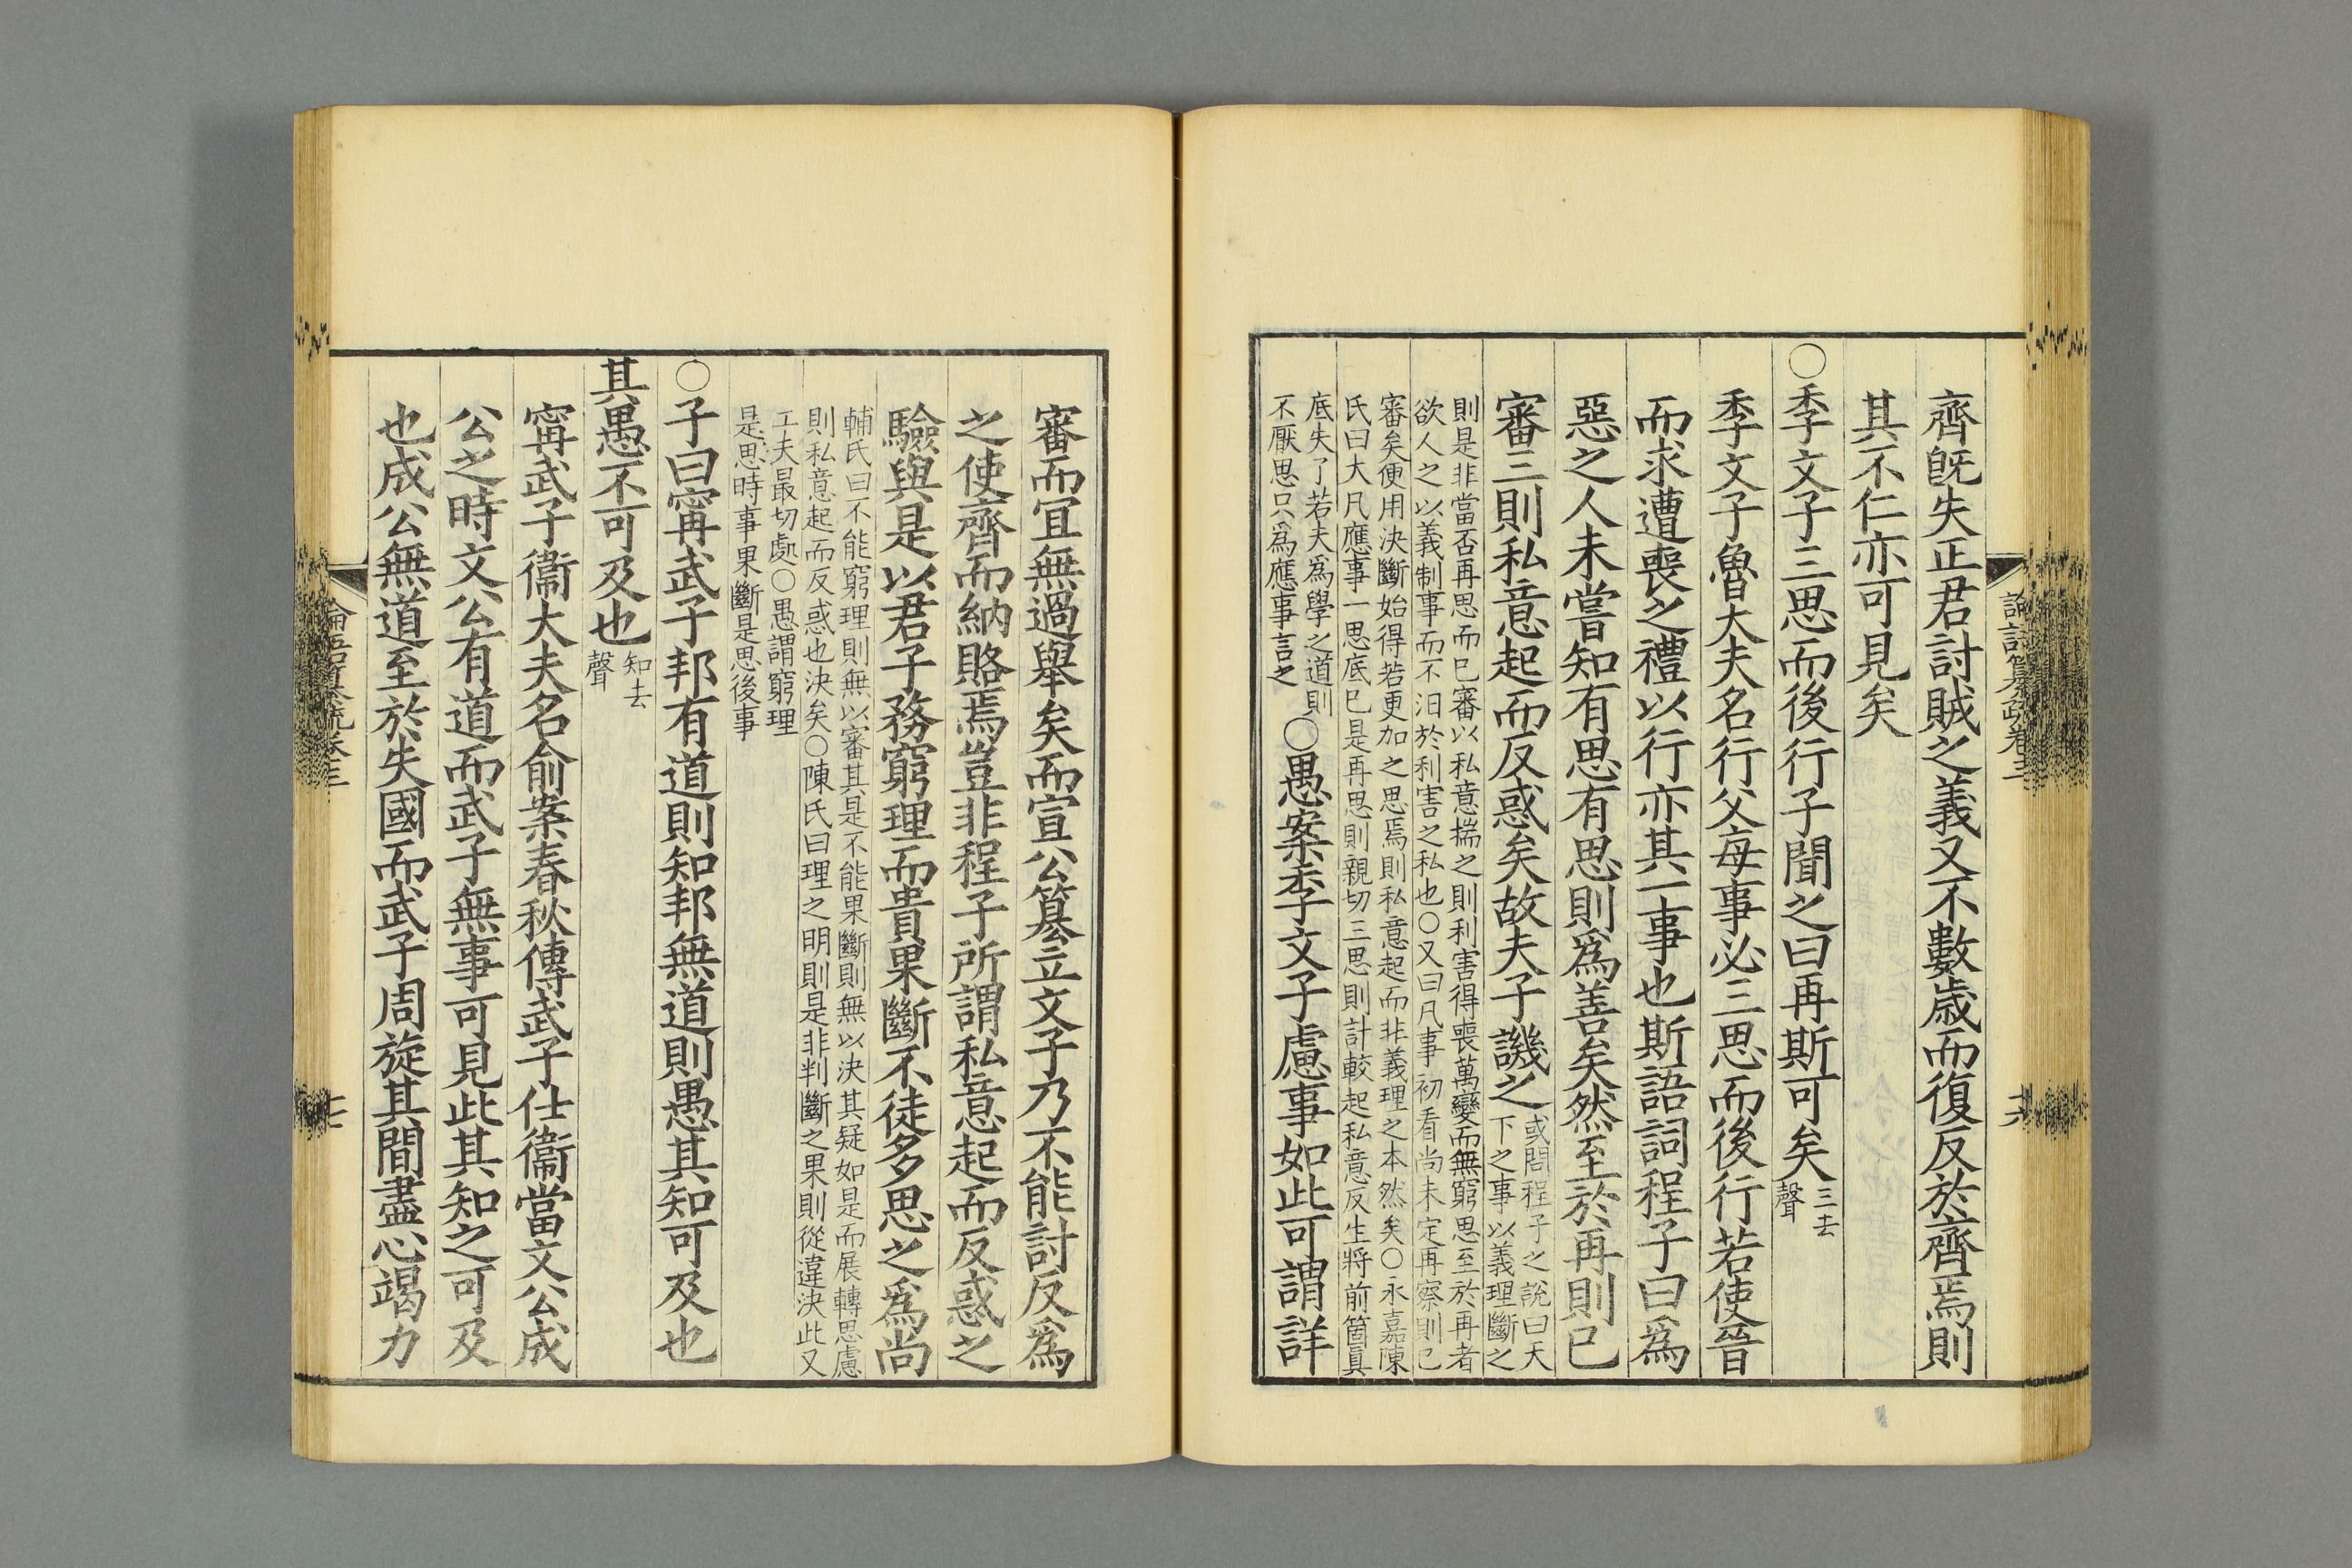 齊既失正君討賊之義又不數歳而復反於齊焉則
其不仁亦可見矣
○季文子三思而後行子聞之曰再斯可矣
三去
聲
季文子魯大夫名行父每事必三思而後行若使晉
而求遭喪之禮以行亦其一事也斯語詞程子曰爲
惡之人未嘗知有思有思則爲善矣然至於再則已
審三則私意起而反惑矣故夫子譏之
或問程子之說曰天
下之事以義理斷之
則是非當否再思而已審以私意揣之則利害得喪萬變而無窮思至於再者
欲人之以義制事而不汨於利害之私也○又曰凡事初看尚未定再察則已
審矣便用決斷始得若更加之思焉則私意起而非義理之本然矣○永嘉陳
氏曰大凡應事一思底已是再思則親切三思則計較起私意反生將前箇眞
底失了若夫爲學之道則
不厭思只爲應事言之
○愚案季文子慮事如此可謂詳
審而宜無過舉矣而宣公簒立文子乃不能討反爲
之使齊而納賂焉豈非程子所謂私意起而反惑之
驗與是以君子務窮理而貴果斷不徒多思之爲尚
輔氏曰不能窮理則無以審其是不能果斷則無以決其疑如是而展轉思慮
則私意起而反惑也決矣○陳氏曰理之明則是非判斷之果則從違決此又
工夫最切處○愚謂窮理
是思時事果斷是思後事
○子曰甯武子邦有道則知邦無道則愚其知可及也
其愚不可及也
知去
聲
甯武子衞大夫名俞案春秋傳武子仕衞當文公成
公之時文公有道而武子無事可見此其知之可及
也成公無道至於失國而武子周旋其間盡心竭力